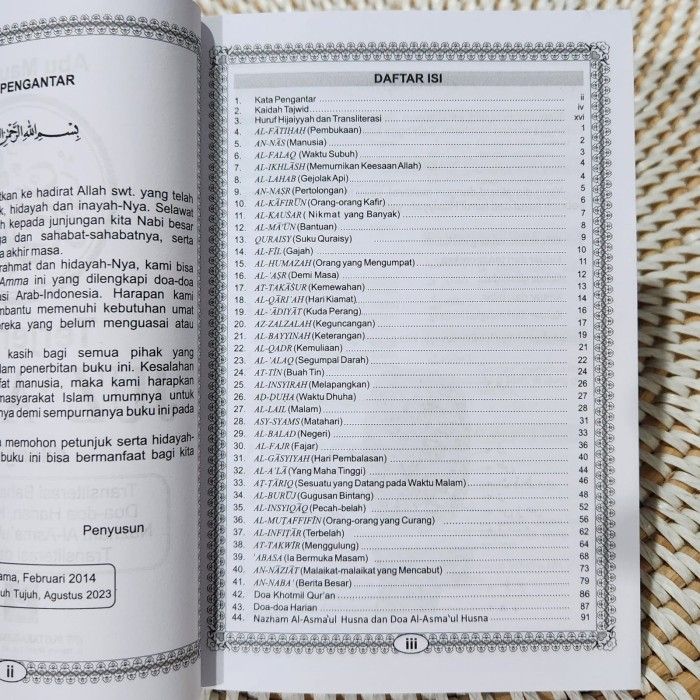 PENGANTAR
بسم الله الرحمن
tkan ke hadirat Allah swt. yang telah
k, hidayah dan inayah-Nya. Selawat
h kepada junjungan kita Nabi besar
ga dan sahabat-sahabatnya, serta
a akhir masa.
rahmat dan hidayah-Nya, kami bisa
Amma ini yang dilengkapi doa-doa
asi Arab-Indonesia. Harapan kami
mbantu memenuhi kebutuhan umat
ereka yang belum menguasai atau
kasih bagi semua pihak yang
lam penerbitan buku ini. Kesalahan
fat manusia, maka kami harapkan
masyarakat Islam umumnya untuk
nya demi sempurnanya buku ini pada
a memohon petunjuk serta hidayah-
buku ini bisa bermanfaat bagi kita
Penyusun
ama, Februari 2014
uh Tujuh, Agustus 2023
ii
DAFTAR ISI
1. Kata Pengantar ii
2. Kaidah Tajwid iv
3. Huruf Hijaiyyah dan Transliterasi xvi
4. AL-FĀTIHAH (Pembukaan) 1
5. AN-NĀS (Manusia) 2
6. AL-FALAQ (Waktu Subuh) 3
7. AL-IKHLĀSH (Memurnikan Keesaan Allah) 4
8. AL-LAHAB (Gejolak Api) 4
9. AN-NASR (Pertolongan) 5
10. AL-KĀFIRŪN (Orang-orang Kafir) 6
11. AL-KAUSAR (Nikmat yang Banyak) 7
12. AL-MĀ'ŪN (Bantuan) 8
13. QURAISY (Suku Quraisy) 9
14. AL-FĪL (Gajah) 10
15. AL-HUMAZAH (Orang yang Mengumpat) 11
16. AL-'AṢR (Demi Masa) 12
17. AT-TAKĀSUR (Kemewahan) 12
18. AL-QĀRI'AH (Hari Kiamat) 14
19. AL-'ĀDIYĀT (Kuda Perang) 16
20. AZ-ZALZALAH (Keguncangan) 17
21. AL-BAYYINAH (Keterangan) 19
22. AL-QADR (Kemuliaan) 21
23. AL-'ALAQ (Segumpal Darah) 22
24. AT-TĪN (Buah Tin) 24
25. AL-INSYIRAH (Melapangkan) 26
26. AD-DUHA (Waktu Dhuha) 27
27. AL-LAIL (Malam) 28
28. ASY-SYAMS (Matahari) 31
29. AL-BALAD (Negeri) 33
30. AL-FAJR (Fajar) 36
31. AL-GĀSYIYAH (Hari Pembalasan) 40
32. AL-A'LĀ (Yang Maha Tinggi) 44
33. AT-TĀRIQ (Sesuatu yang Datang pada Waktu Malam) 46
34. AL-BURŪJ (Gugusan Bintang) 48
35. AL-INSYIQĀQ (Pecah-belah) 52
36. AL-MUTAFFIFĪN (Orang-orang yang Curang) 56
37. AL-INFIṬĀR (Terbelah) 62
38. AT-TAKWĪR (Menggulung) 64
39. 'ABASA (Ia Bermuka Masam) 68
40. AN-NĀZIĀT (Malaikat-malaikat yang Mencabut) 73
41. AN-NABA' (Berita Besar) 79
42. Doa Khotmil Qur'an 86
43. Doa-doa Harian 87
44. Nazham Al-Asma'ul Husna dan Doa Al-Asma'ul Husna 91
iii